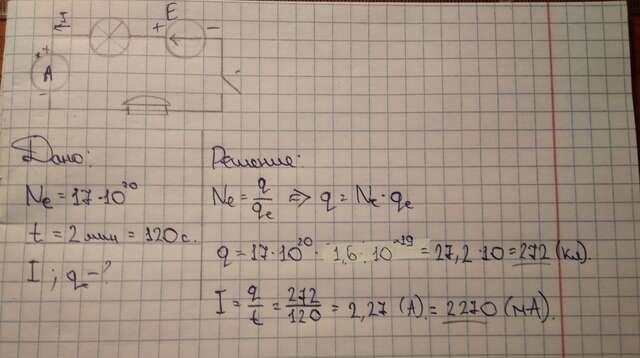 I E
+ -
+
A
-
Дано:
Nе = 17·10²⁰
t = 2 мин = 120 с.
I ; q - ?
Решение:
Nе = q/qе => q = Nе · qе
q = 17·10²⁰ · 1,6 · 10⁻¹⁹ = 27,2·10 = 272 (Кл).
I = q/t = 272/120 = 2,27 (А) = 2270 (мА).